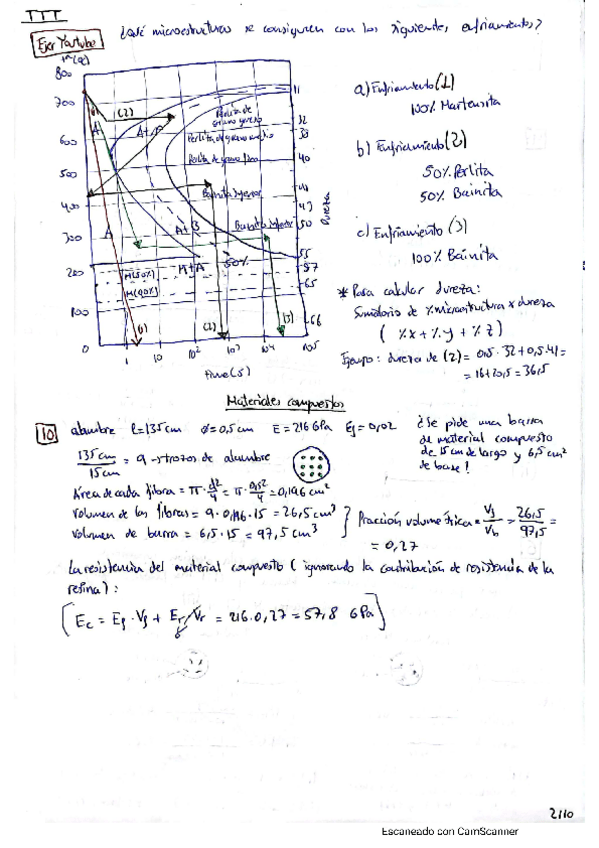 TTT
Ejer Youtube
¿Qué microestructuras se consiguen con los siguientes enfriamientos?
800
700
600
500
400
300
200
100
0
1
10
10²
10³
10⁴
10⁵
(1)
(2)
A
A+P
Perlita de grano grueso
Perlita de grano medio
Perlita de grano fino
Bainita Superior
Bainita Inferior
A
A+B
M+A
50%
M(50%)
M(90%)
(1)
(2)
(3)
11
32
38
40
41
43
50
55
57
65
66
Dureza
a) Enfriamiento (1)
100% Martensita
b) Enfriamiento (2)
50% Perlita
50% Bainita
c) Enfriamiento (3)
100% Bainita
* Para calcular dureza:
Sumatorio de % microestructura x dureza
( %x + %y + %z )
Ejemplo: dureza de (2) = 0,5 · 32 + 0,5 · 41 =
= 16 + 20,5 = 36,5
Materiales compuestos
10
alambre l=135cm Ø=0,5cm E=216GPa Ef=0,02
¿Se pide una barra
de material compuesto
de 15cm de largo y 6,5 cm²
de base?
135cm/15cm = 9 trozos de alambre
Área de cada fibra = π · d²/4 = π · 0,5²/4 = 0,196 cm²
Volumen de las fibras = 9 · 0,196 · 15 = 26,5 cm³
Volumen de barra = 6,5 · 15 = 97,5 cm³
Fracción volumétrica = Vf/Vb = 26,5/97,5 =
= 0,27
La resistencia del material compuesto (ignorando la contribución de resistencia de la
resina):
[Ec = Ef · Vf + Er/Vr = 216 · 0,27 = 57,8 GPa]
2/10
Escaneado con CamScanner